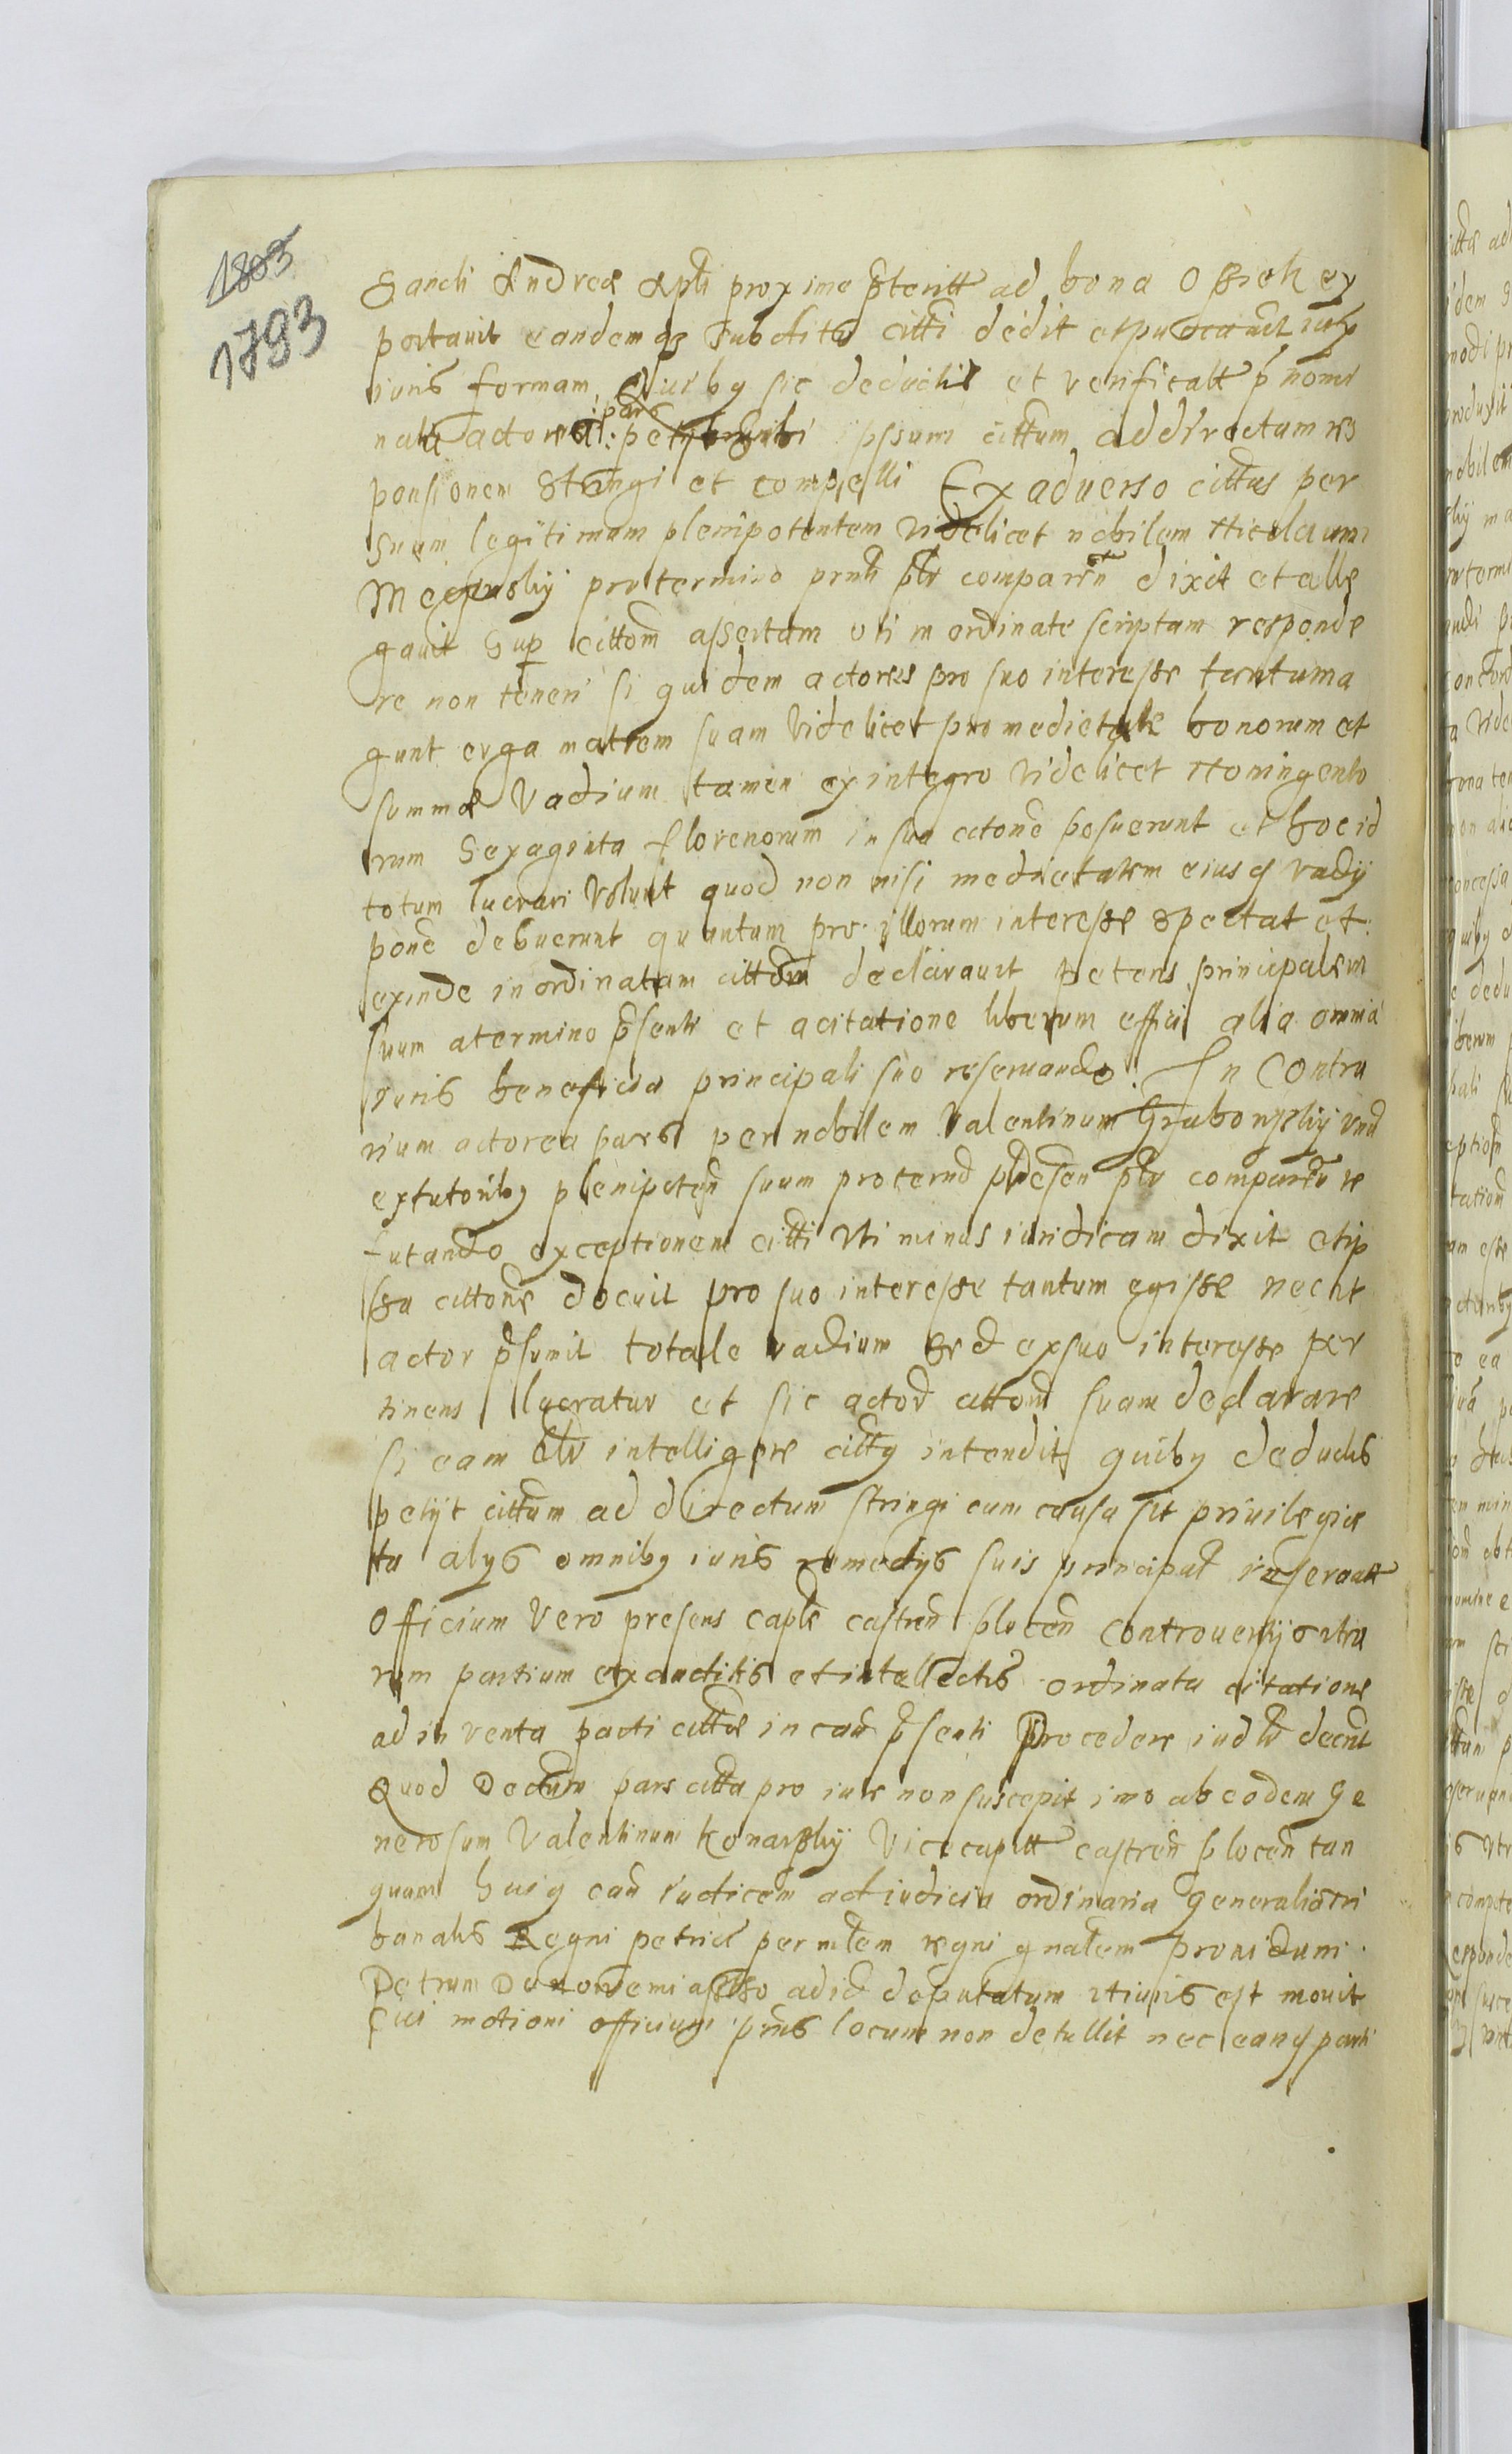 1803
1793
Sancti Andreæ Apli proxime pteritt ad bona Ossiek ex
portavit eandemqz subditis citti dedit et iuxt
iuris formam, Quiby sic deductis et verificatt p nomi
nati actores: pars ipsum cittum ad directum res
ponsionem stringi et compelli Ex adverso cittus per
suum legitimum plenipotentem videlicet nobilem Nicolaum
pro termino pnti ptr comparen dixit et alle
gavit Sup cittom assertam uti inordinate scriptam responde
re non teneri si quidem actores pro suo interesse tantum a
gunt erga matrem suam videlicet pro medietate bonorum et
summæ Vadium tamen ex integro videlicet Noningento
rum Sexaginta florenorum in sua actone posuerunt et hoc id
totum lucrari volunt quod non nisi medietatem eiusq vadij
pone debuerunt quantum pro illorum interesse spectat et
exinde inordinatam cittom declaravit petens principalem
suum a termino psenti et a citatione liberum effici alia omnia
iuris beneficia principali suo reservando. In Contra
rium actorea pars per nobilem Valentinum Grabowskij unu
ex tutoriby plenipoten suum pro termo presen ptr comparen re
futando exceptionem citti uti minus iuridicam dixit et ip
sa cittone docuit pro suo interesse tantum egisse nec ut
actor psumit totale vadium sed ex suo interesse per
tinens lucratur et sic actor cittom suam declarare
si eam intelligere citty intendit quiby deductis
petijt cittum ad directum stringi cum causa sit privilegia
ta alys omniby iuris remedijs suis principal reservatt
Officium Vero presens caple castren plocen Controversijs utra
rum partium exauditis et intellectis ordinata citatione
adinventa parti cittæ in cau psenti Procedere iudlr decrit
Quod Decrtum pars citta pro iure non suscepit imo ab eodem ge
nerosum Valentinum Konarskij Vicecaptt castren plocen tan
quam huiq cau iudicem ad iudicia ordinaria Generalia tri
banalis Regni petrico per mlem regni gnalem providum
Petrum De ad id deputatum uti iuris est movit
Cui motioni officium pns locum non detullit nec eamq parti